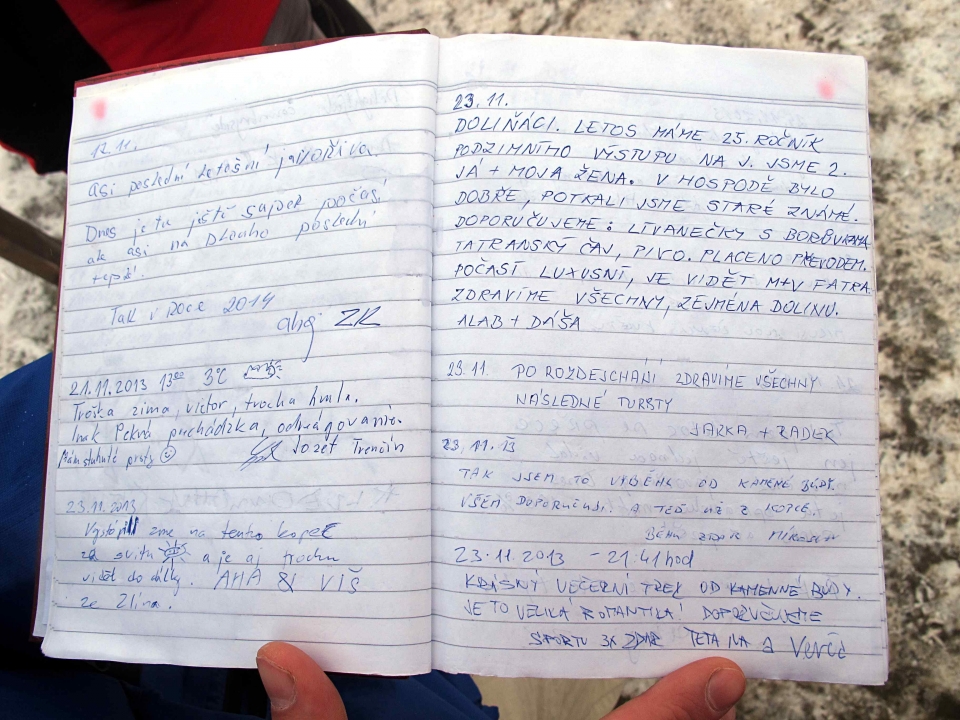 12.11.
asi poslední letošní javořina.
Dnes je tu ještě super počasí
ale asi na dlouho poslední
teplé.
Tak v roce 2014
ahoj ZK
21.11.2013 13⁰⁰ 3°C
Troška zima, vietor, trocha hmla.
Inak Pekná puchádzka, odreagovanie.
Mám stuhnuté prsty ☺ Jozef Trenčín
23.11.2013
Vystúpili sme na tento kopec
za svitu a je aj trochu
vidět do dálky. AHA & VIŠ
ze Zlína.
23.11.
DOLIŇÁCI. LETOS MÁME 25. ROČNÍK
PODZIMNÍHO VÝSTUPU NA J. JSME 2.
JÁ + MOJA ŽENA. V HOSPODĚ BYLO
DOBŘE, POTKALI JSME STARÉ ZNÁMÉ.
DOPORUČUJEME: LÍVANEČKY S BORŮVKAMA
TATRANSKÝ ČAJ, PIVO. PLACENO PŘEVODEM.
POČASÍ LUXUSNÍ, JE VIDĚT M+V FATRA.
ZDRAVÍME VŠECHNY, ZEJMÉNA DOLINU.
ALAB + DÁŠA
23.11. PO ROZDEJCHÁNÍ ZDRAVÍME VŠECHNY
NÁSLEDNÉ TURISTY
JARKA + RADEK
23.11.13
TAK JSEM TO VYBĚHL OD KAMENÉ BÚDY.
VŠEM DOPORUČUJI. A TEĎ UŽ Z KOPCE.
BĚHU ZDAR MIROSLAV
23.11.2013 - 21:41 hod
KRÁSNÝ VEČERNÍ TREK OD KAMENNÉ BÚDY.
JE TO VELIKÁ ROMANTIKA! DOPORUČUJEME
SPORTU 3X ZDAR TETA IVA a Verča